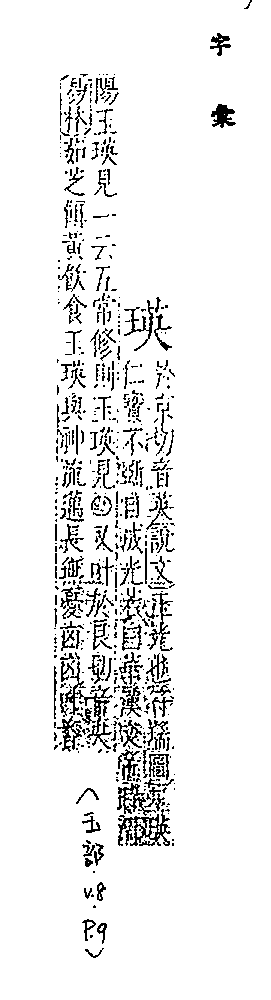 字彙
瑛
於京切音英說文玉光也符瑞圖玉瑛
仁寶不斲自成光若白華漢文帝時渭
陽玉瑛見一云五常修則玉瑛見又叶於良切音央
易林茹芝餌黃飲食玉瑛與神流通長無憂凶
(玉部.v.8.P.9)